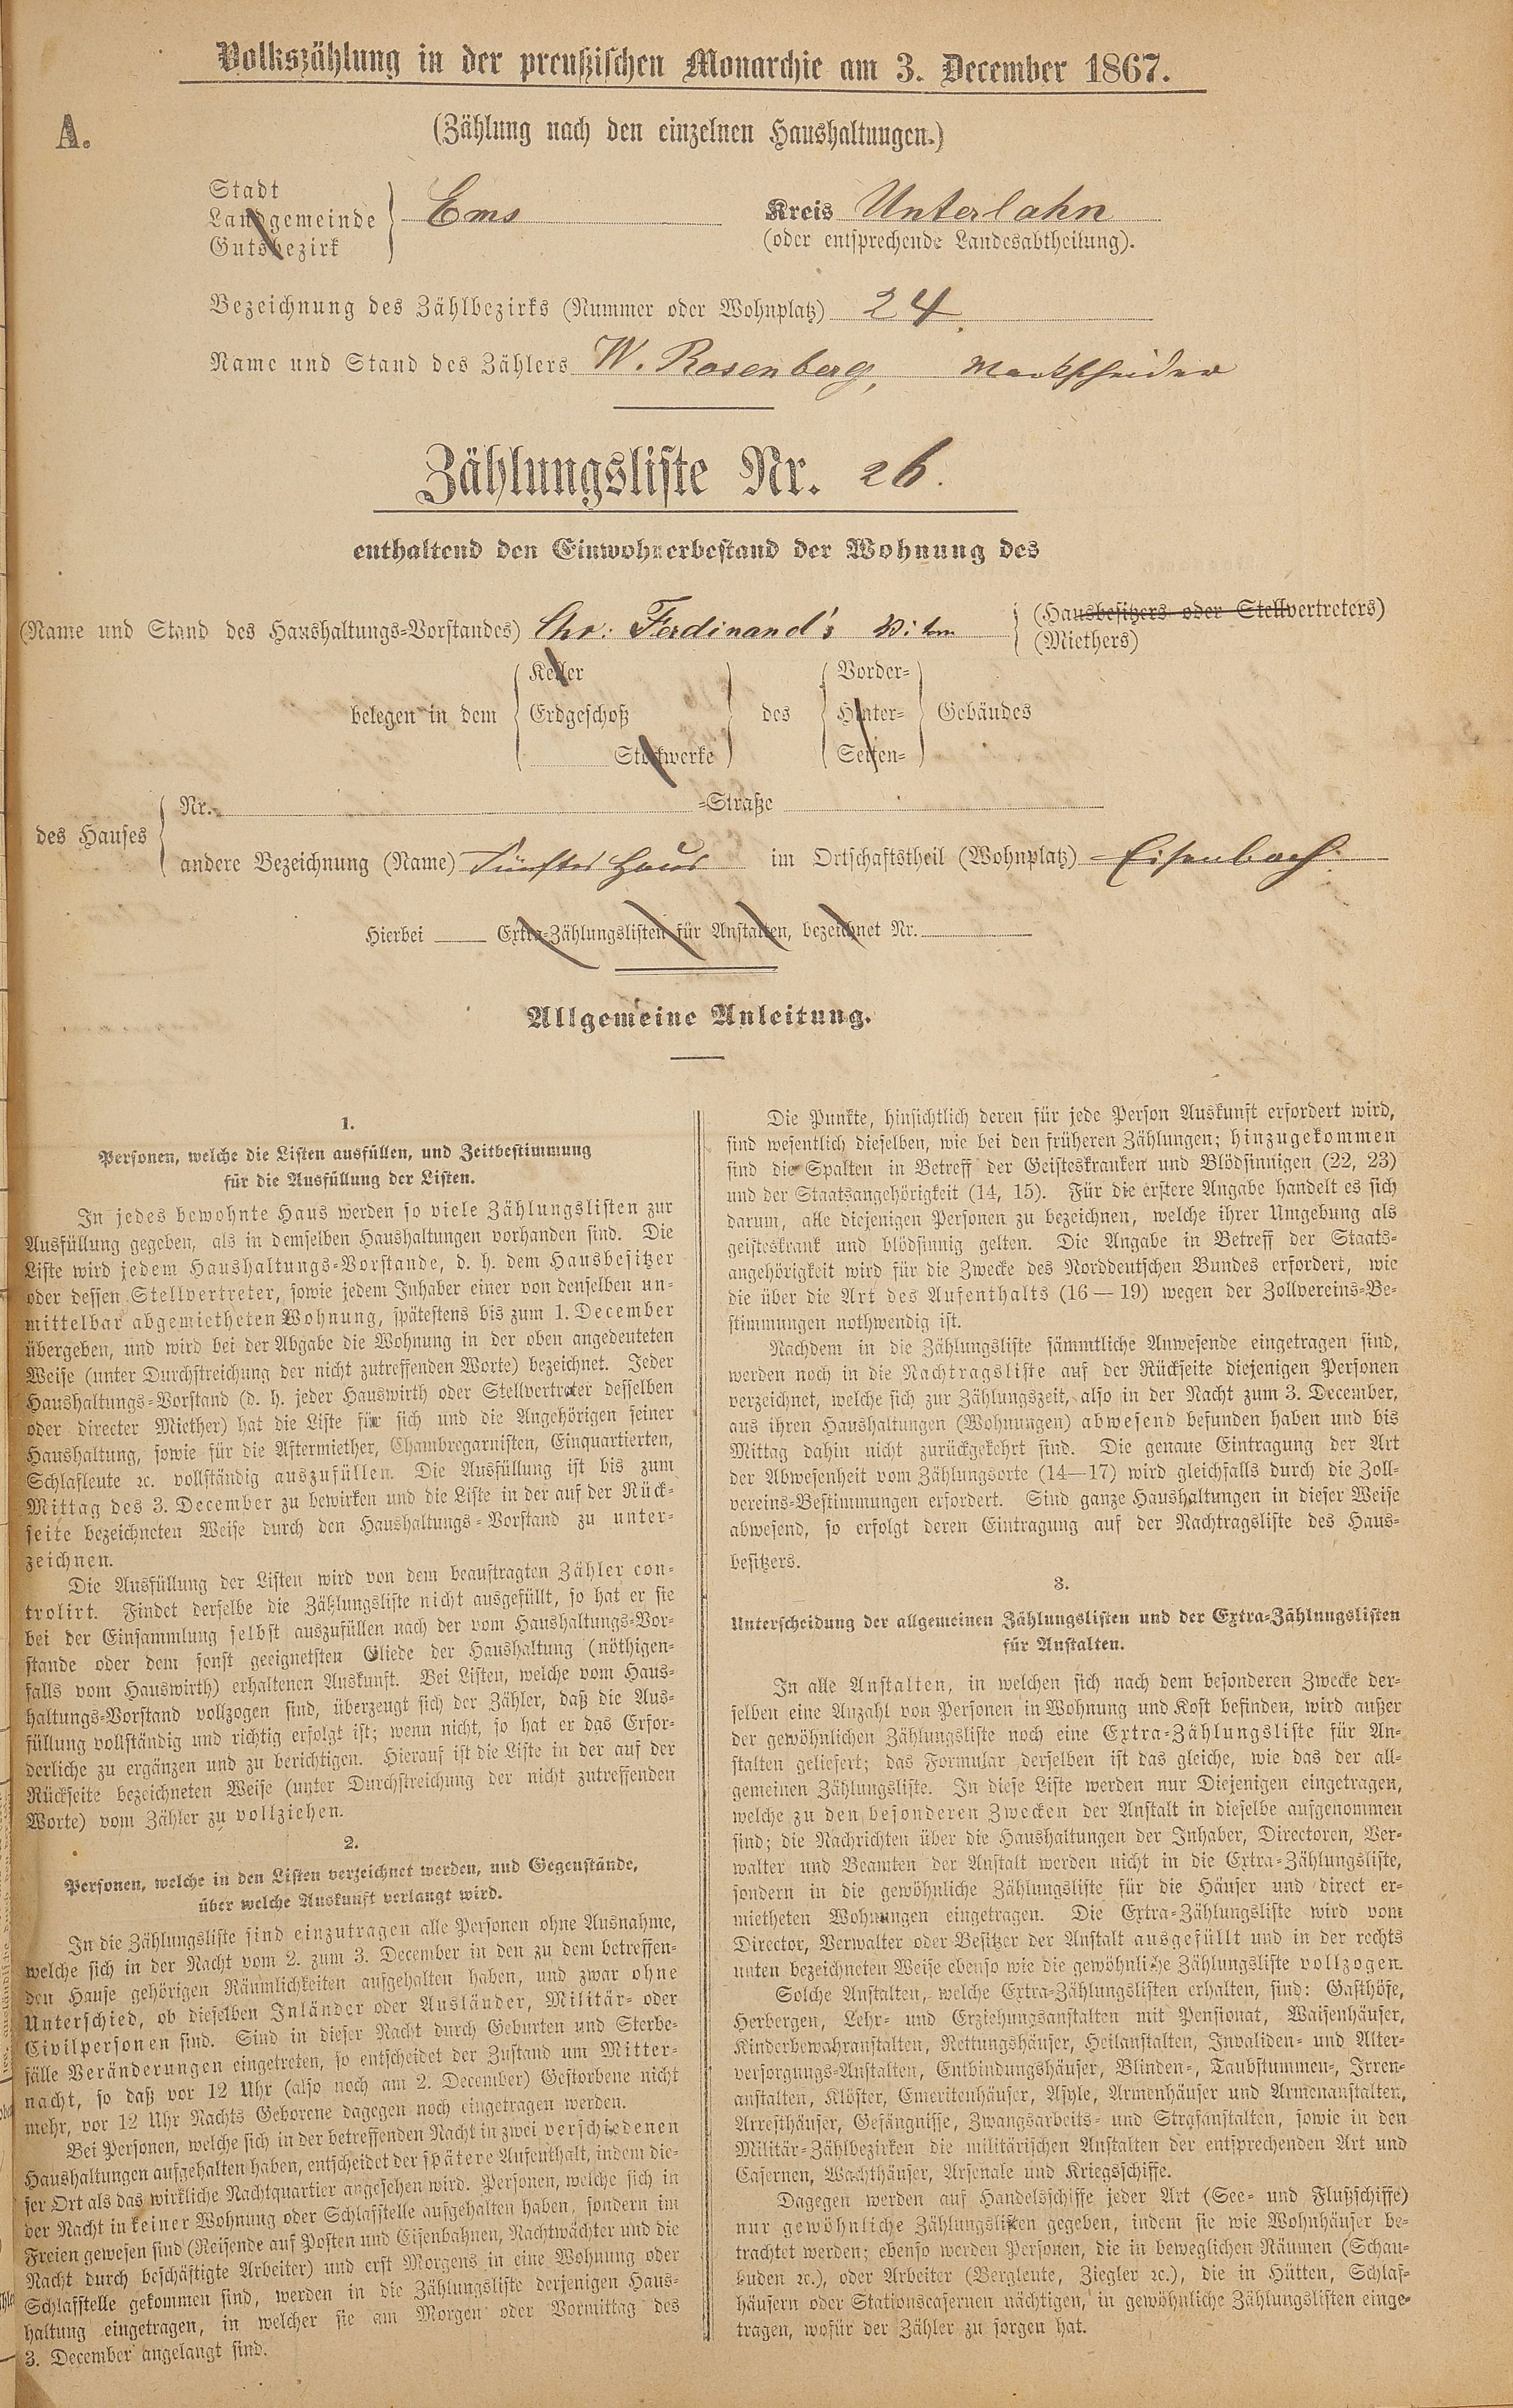 Volkszählung in der preußischen Monarchie am 3. December 1867.
A.
(Zählung nach den einzelnen Haushaltungen.)
Stadt
Landgemeinde
Gutsbezirk
Ems
Kreis Unterlahn
(oder entsprechende Landesabtheilung).
Bezeichnung des Zählbezirks (Nummer oder Wohnplatz) 24.
Name und Stand des Zählers W. Rosenberg, Markscheider
Zählungsliste Nr. 26.
enthaltend den Einwohnerbestand der Wohnung des
(Name und Stand des Haushaltungs-Vorstandes) Chr: Ferdinand's
(Hausbesitzers oder Stellvertreters)
(Miethers)
belegen in dem
Keller
Erdgeschoß
Stockwerke
des
Vorder-
Hinter-
Seiten-
Gebäudes
des Hauses
Nr. -Straße
andere Bezeichnung (Name) Fünftes Haus im Ortschaftstheil (Wohnplatz) Eisenbach.
Hierbei Extra-Zählungslisten für Anstalten, bezeichnet Nr.
Allgemeine Anleitung.
1.
Personen, welche die Listen ausfüllen, und Zeitbestimmung
für die Ausfüllung der Listen.
In jedes bewohnte Haus werden so viele Zählungslisten zur
Ausfüllung gegeben, als in demselben Haushaltungen vorhanden sind. Die
Liste wird jedem Haushaltungs-Vorstande, d. h. dem Hausbesitzer
oder dessen Stellvertreter, sowie jedem Inhaber einer von denselben un-
mittelbar abgemietheten Wohnung, spätestens bis zum 1. December
übergeben, und wird bei der Abgabe die Wohnung in der oben angedeuteten
Weise (unter Durchstreichung der nicht zutreffenden Worte) bezeichnet. Jeder
Haushaltungs-Vorstand (d. h. jeder Hauswirth oder Stellvertreter desselben
oder directer Miether) hat die Liste für sich und die Angehörigen seiner
Haushaltung, sowie für die Aftermiether, Chambregarnisten, Einquartierten,
Schlafleute ꝛc. vollständig auszufüllen. Die Ausfüllung ist bis zum
Mittag des 3. December zu bewirken und die Liste in der auf der Rück-
seite bezeichneten Weise durch den Haushaltungs-Vorstand zu unter-
zeichnen.
Die Ausfüllung der Listen wird von dem beauftragten Zähler con-
trolirt. Findet derselbe die Zählungsliste nicht ausgefüllt, so hat er sie
bei der Einsammlung selbst auszufüllen nach der vom Haushaltungs-Vor-
stande oder dem sonst geeignetsten Gliede der Haushaltung (nöthigen-
falls vom Hauswirth) erhaltenen Auskunft. Bei Listen, welche vom Haus-
haltungs-Vorstand vollzogen sind, überzeugt sich der Zähler, daß die Aus-
füllung vollständig und richtig erfolgt ist; wenn nicht, so hat er das Erfor-
derliche zu ergänzen und zu berichtigen. Hierauf ist die Liste in der auf der
Rückseite bezeichneten Weise (unter Durchstreichung der nicht zutreffenden
Worte) vom Zähler zu vollziehen.
2.
Personen, welche in den Listen verzeichnet werden, und Gegenstände,
über welche Auskunft verlangt wird.
In die Zählungsliste sind einzutragen alle Personen ohne Ausnahme,
welche sich in der Nacht vom 2. zum 3. December in den zu dem betreffen-
den Hause gehörigen Räumlichkeiten aufgehalten haben, und zwar ohne
Unterschied, ob dieselben Inländer oder Ausländer, Militär- oder
Civilpersonen sind. Sind in dieser Nacht durch Geburten und Sterbe-
fälle Veränderungen eingetreten, so entscheidet der Zustand um Mitter-
nacht, so daß vor 12 Uhr (also noch am 2. December) Gestorbene nicht
mehr, vor 12 Uhr Nachts Geborene dagegen noch eingetragen werden.
Bei Personen, welche sich in der betreffenden Nacht in zwei verschiedenen
Haushaltungen aufgehalten haben, entscheidet der spätere Aufenthalt, indem die-
ser Ort als das wirkliche Nachtquartier angesehen wird. Personen, welche sich in
der Nacht in keiner Wohnung oder Schlafstelle aufgehalten haben, sondern im
Freien gewesen sind (Reisende auf Posten und Eisenbahnen, Nachtwächter und die
Nacht durch beschäftigte Arbeiter) und erst Morgens in eine Wohnung oder
Schlafstelle gekommen sind, werden in die Zählungsliste derjenigen Haus-
haltung eingetragen, in welcher sie am Morgen oder Vormittag des
3. December angelangt sind.
Die Punkte, hinsichtlich deren für jede Person Auskunft erfordert wird,
sind wesentlich dieselben, wie bei den früheren Zählungen; hinzugekommen
sind die Spalten in Betreff der Geisteskranken und Blödsinnigen (22, 23)
und der Staatsangehörigkeit (14, 15). Für die erstere Angabe handelt es sich
darum, alle diejenigen Personen zu bezeichnen, welche ihrer Umgebung als
geisteskrank und blödsinnig gelten. Die Angabe in Betreff der Staats-
angehörigkeit wird für die Zwecke des Norddeutschen Bundes erfordert, wie
die über die Art des Aufenthalts (16 — 19) wegen der Zollvereins-Be-
stimmungen nothwendig ist.
Nachdem in die Zählungsliste sämmtliche Anwesende eingetragen sind,
werden noch in die Nachtragsliste auf der Rückseite diejenigen Personen
verzeichnet, welche sich zur Zählungszeit, also in der Nacht zum 3. December,
aus ihren Haushaltungen (Wohnungen) abwesend befunden haben und bis
Mittag dahin nicht zurückgekehrt sind. Die genaue Eintragung der Art
der Abwesenheit vom Zählungsorte (14—17) wird gleichfalls durch die Zoll-
vereins-Bestimmungen erfordert. Sind ganze Haushaltungen in dieser Weise
abwesend, so erfolgt deren Eintragung auf der Nachtragsliste des Haus-
besitzers.
3.
Unterscheidung der allgemeinen Zählungslisten und der Extra-Zählungslisten
für Anstalten.
In alle Anstalten, in welchen sich nach dem besonderen Zwecke der-
selben eine Anzahl von Personen in Wohnung und Kost befinden, wird außer
der gewöhnlichen Zählungsliste noch eine Extra-Zählungsliste für An-
stalten geliefert; das Formular derselben ist das gleiche, wie das der all-
gemeinen Zählungsliste. In diese Liste werden nur Diejenigen eingetragen,
welche zu den besonderen Zwecken der Anstalt in dieselbe aufgenommen
sind; die Nachrichten über die Haushaltungen der Inhaber, Directoren, Ver-
walter und Beamten der Anstalt werden nicht in die Extra-Zählungsliste,
sondern in die gewöhnliche Zählungsliste für die Häuser und direct er-
mietheten Wohnungen eingetragen. Die Extra-Zählungsliste wird vom
Director, Verwalter oder Besitzer der Anstalt ausgefüllt und in der rechts
unten bezeichneten Weise ebenso wie die gewöhnliche Zählungsliste vollzogen.
Solche Anstalten, welche Extra-Zählungslisten erhalten, sind: Gasthöfe,
Herbergen, Lehr- und Erziehungsanstalten mit Pensionat, Waisenhäuser,
Kinderbewahranstalten, Rettungshäuser, Heilanstalten, Invaliden- und Alter-
versorgungs-Anstalten, Entbindungshäuser, Blinden-, Taubstummen-, Irren-
anstalten, Klöster, Emeritenhäuser, Asyle, Armenhäuser und Armenanstalten,
Arresthäuser, Gefängnisse, Zwangsarbeits- und Strafanstalten, sowie in den
Militär-Zählbezirken die militärischen Anstalten der entsprechenden Art und
Casernen, Wachthäuser, Arsenale und Kriegsschiffe.
Dagegen werden auf Handelsschiffe jeder Art (See- und Flußschiffe)
nur gewöhnliche Zählungslisten gegeben, indem sie wie Wohnhäuser be-
trachtet werden; ebenso werden Personen, die in beweglichen Räumen (Schau-
buden ꝛc.), oder Arbeiter (Bergleute, Ziegler ꝛc.), die in Hütten, Schlaf-
häusern oder Stationscasernen nächtigen, in gewöhnliche Zählungslisten einge-
tragen, wofür der Zähler zu sorgen hat.